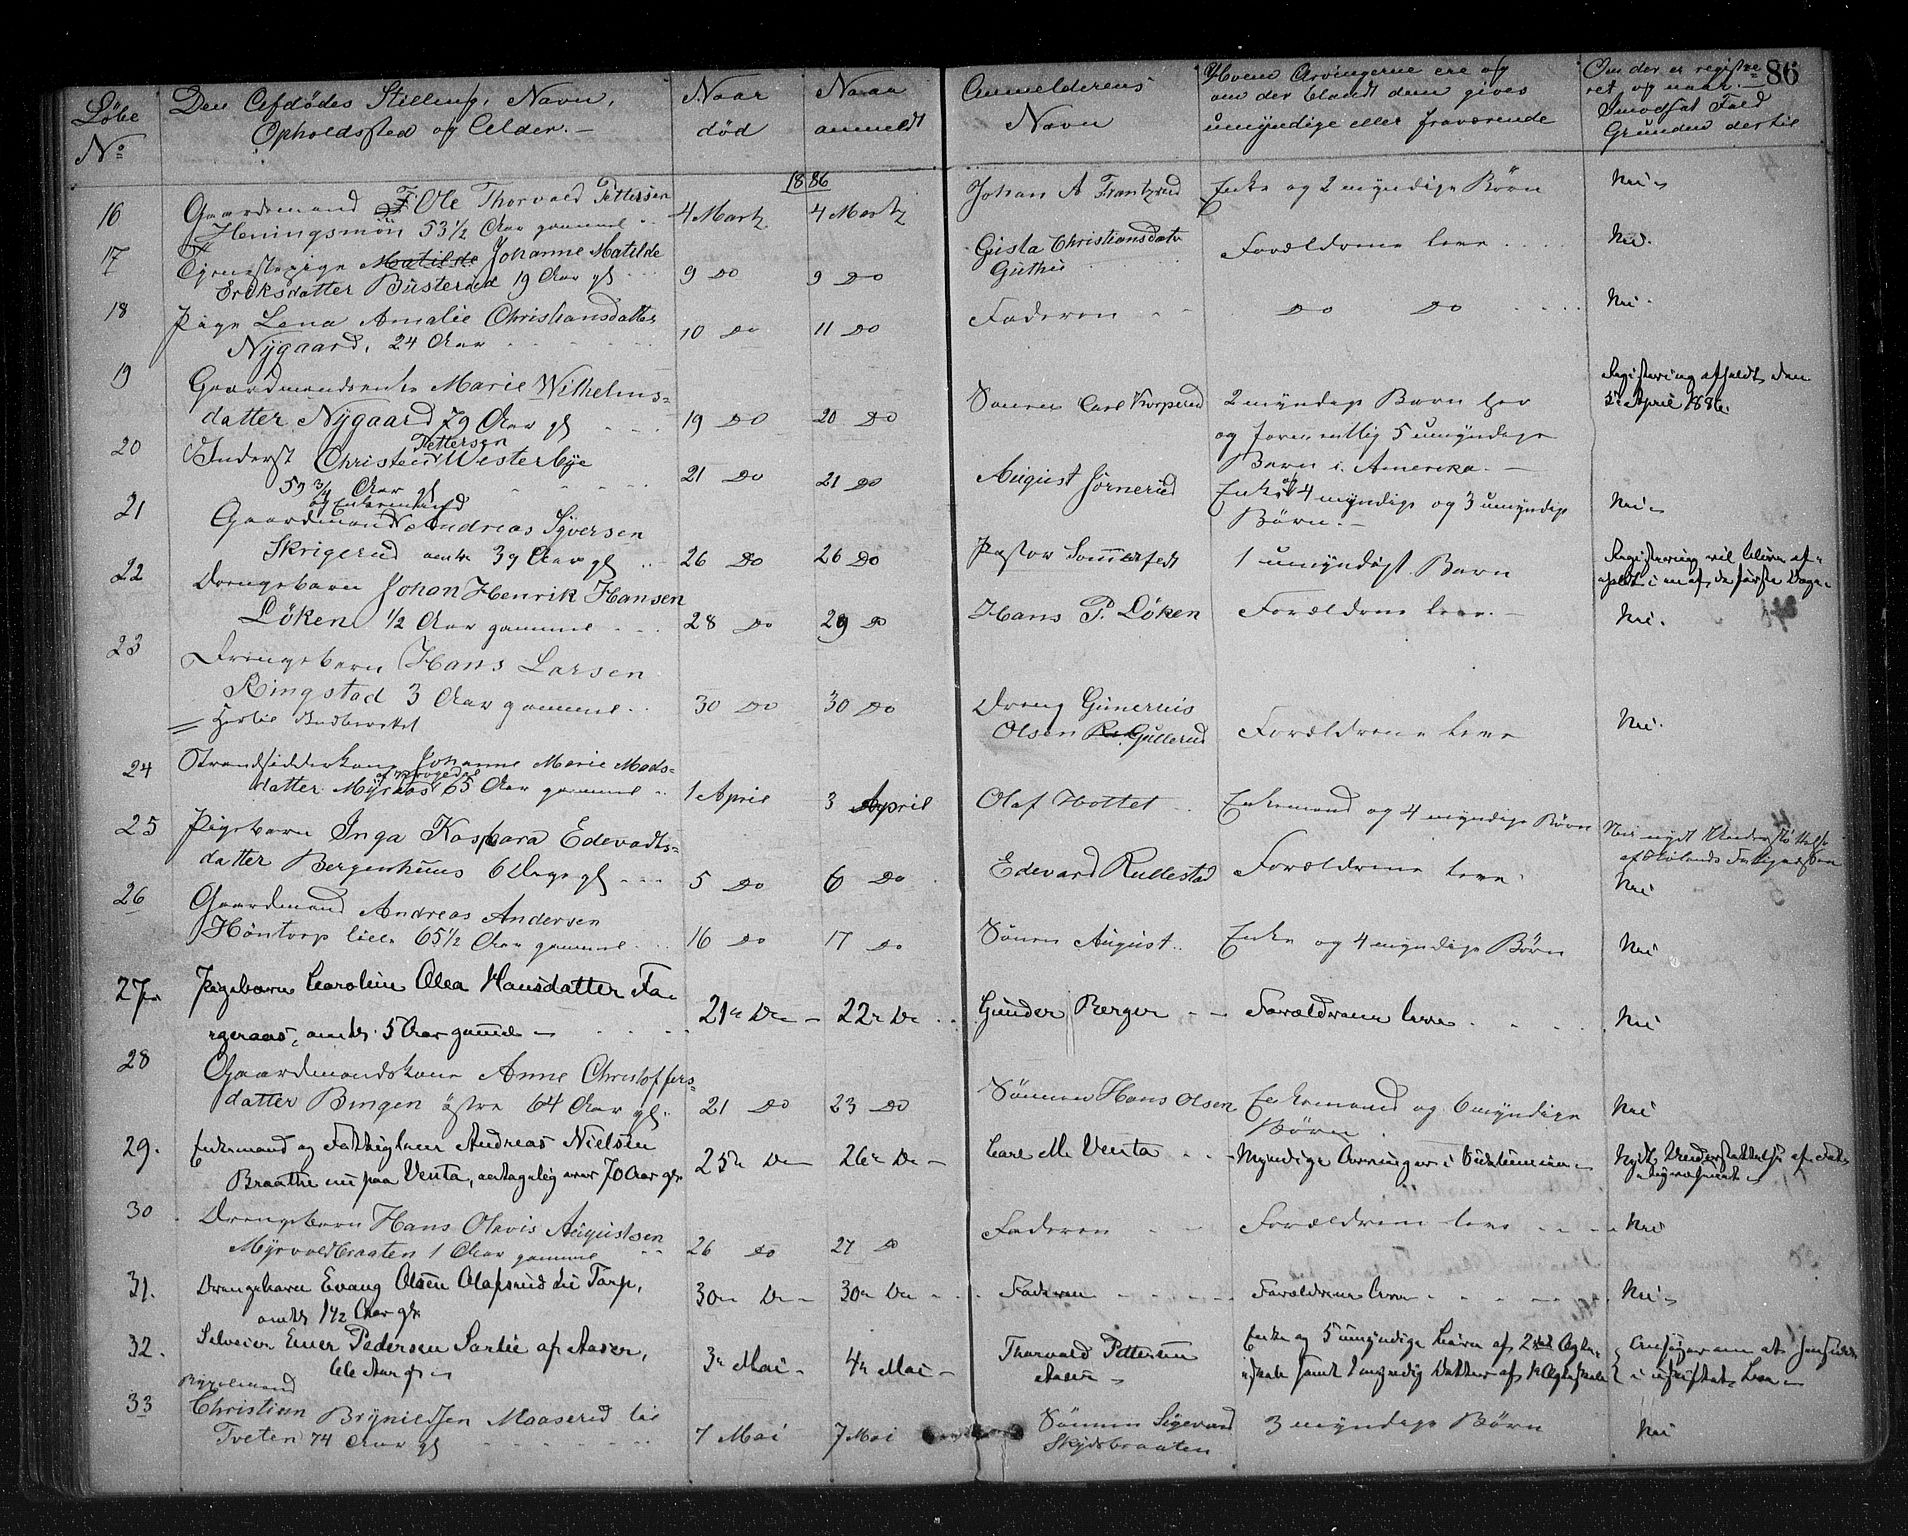 86
Löbe No
Den Afdødes Stilling, Navn,
Opholdssted og Alder.
Naar
død
Naar
anmeldt
Anmelderens
Navn
Hvem Arvingerne ere og
om der blandt dem gives
umyndige eller fraværende
Om der er registre-
ret, og naar.
Imodsat Fald
Grunden dertil
1886
16 Gaardmand Ole Thorvald Pettersen
Heningsmön 53 1/2 Aar gammel 4 Marts 4 Marts Johan A Frantzrud Enke og 2 myndige Börn Nei
17 Tjenestepige Matilde Johanne Matilde
Eriksdatter Busterud 19 Aar gl 9 Do 9 Do Gisla Christiansdatr
Guthus Forældrene leve Nei
18 Pige Lena Amalie Christiansdatter
Nygaard, 24 Aar 10 Do 11 Do Faderen Do Do Nei
19 Gaardmandsenke Marie Wilhelms-
datter Nygaard 79 Aar gl 19 Do 20 Do Sönnen Carl Korperud 2 myndige Barn her
og foren entlig 5 umyndige
Barn i Amerika. Registrering afholdt den
5te April 1886.
20 Inderst Christen Pettersen Westerbye
59 3/4 Aar gl 21 Do 21 Do August Jörnerud Enke og 4 myndige og 3 umyndige
Börn. Nei
21 Gaardmand og Enkemand Andreas Syversen
Skrigerud omtr 39 Aar gl 26 Do 26 Do Pastor Sommerfedt 1 umyndigt Barn Registrering vil blive af-
holdt i en af de första Dage
22 Drengebarn Johan Henrik Hansen
Löken 1/2 Aar gammel 28 Do 29 Do Hans P. Löken Forældrene leve. Nei.
23 Drengebarn Hans Larsen
Ringstad 3 Aar gammel 30 Do 30 Do Dreng Gunerius
Olsen Gullerud Forældrene leve Nei.
24 Strandsidderkone Johanne Marie Mads-
datter Myraas 65 Aar gammel 1 April 3 April Olaf Hottet Enkemand og 4 myndige Börn Nei nydt Understöttelse
af Hölands Fattigvæsen
25 Pigebarn Inga Kaspara Edevadts-
datter Bergenhuus 6 Dage gl 5 Do 6 Do Edevard Rullestad Forældrene leve Nei
26 Gaardmand Andreas Andersen
Höntorp lille 65 1/2 Aar gammel 16 Do 17 Do Sönnen August Enke og 4 myndige Börn Nei
27 Pigebarn Caroline Olea Hansdatter Fa-
geraas, omtr. 5 Aar gammel 21de Do 22de Do Gunder Berger Forældrene leve Nei
28 Gaardmandskone Anne Christoffers-
datter Bingen östre 64 Aar gl. 21 Do 23 Do Sönnen Hans Olsen Enkemand og 6 myndige
Börn Nei
29. Enkemand og Fattiglem Andreas Nielsen
Braathe nu paa Venta, antagelig over 70 Aar gl. 25de Do 26de Do Carl M. Venta Myndige Arvinger i Nydt Understöttelse af Fat-
tigvæsenet
30 Drengebarn Hans Olavis Augustsen
Myrvoldbraaten 1 Aar gammel 26 Do 27 Do Faderen Forældrene leve Nei
31. Drengebarn Evang Olsen Olafsrud Lie Tarp,
omtr 1 1/2 Aar gl. 30de Do 30de Do Faderen Forældrene leve Nei
32. Selveier Emer Pedersen Sorlie af Aaser,
66 Aar gl. 3de Mai 4de Mai Thorvald Pettersen
Aasen Enke og 5 umyndige Börn af 2det Ægte-
skab samt 1 myndig Datter af 1 Ægteskab Ansöger om at hensidde
i uskiftet Bo
33 Christian Bryniedsen Maaserud lie
Tveten 74 Aar gl 7 Mai 7 Mai Sönnen Sigevard
Skydsbraaten 3 myndige Börn Nei